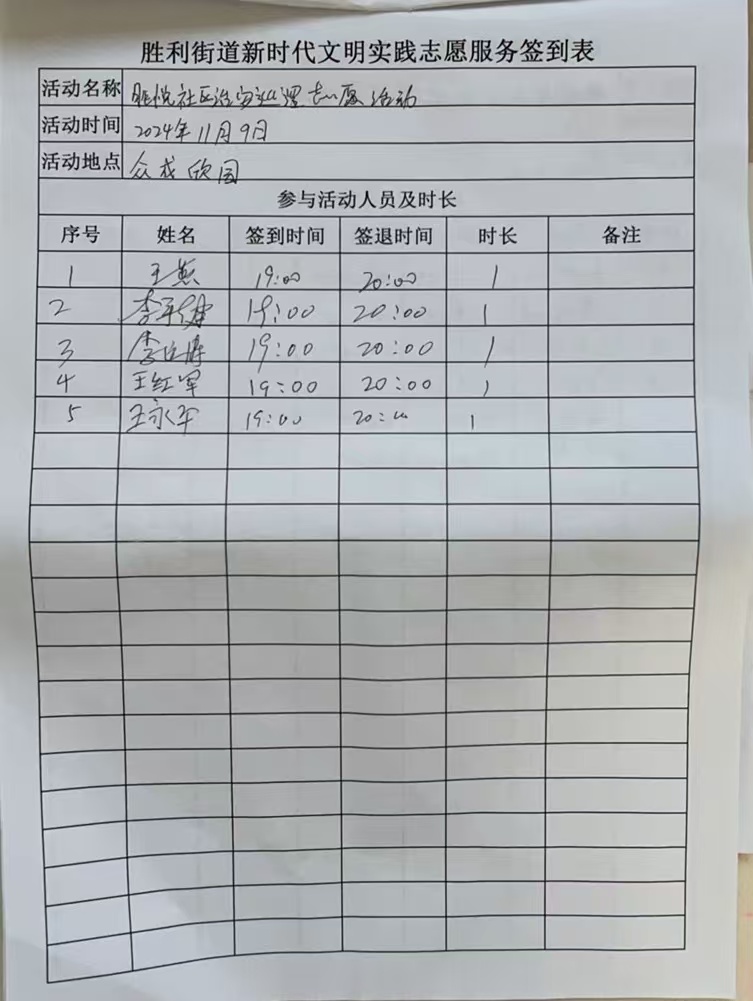 胜利街道新时代文明实践志愿服务签到表
活动名称 社区治安巡逻志愿活动
活动时间 2024年11月9日
活动地点 众成欣园
参与活动人员及时长
序号 姓名 签到时间 签退时间 时长 备注
1 王燕 19:00 20:00 1
2 李 19:00 20:00 1
3 李 19:00 20:00 1
4 王红军 19:00 20:00 1
5 王永军 19:00 20:00 1